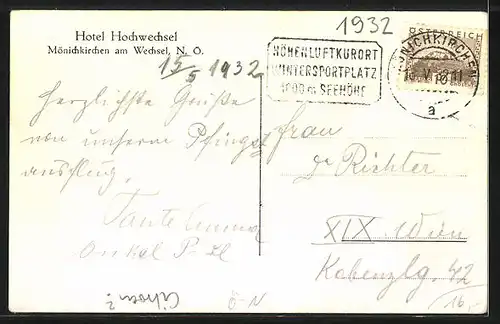 Hotel Hochwechsel
Mönichkirchen am Wechsel, N. Ö.
15/5 1932
Herzlichste Grüße
von unserem Pfingst
ausflug.
Tante
Onkel
1932
HÖHENLUFTKURORT
WINTERSPORTPLATZ
1000 m SEEHÖHE
ÖSTERREICH
MÖNICHKIRCHEN
a
Frau
Richter
XIX. Wien
Kobenzlg. 42
16